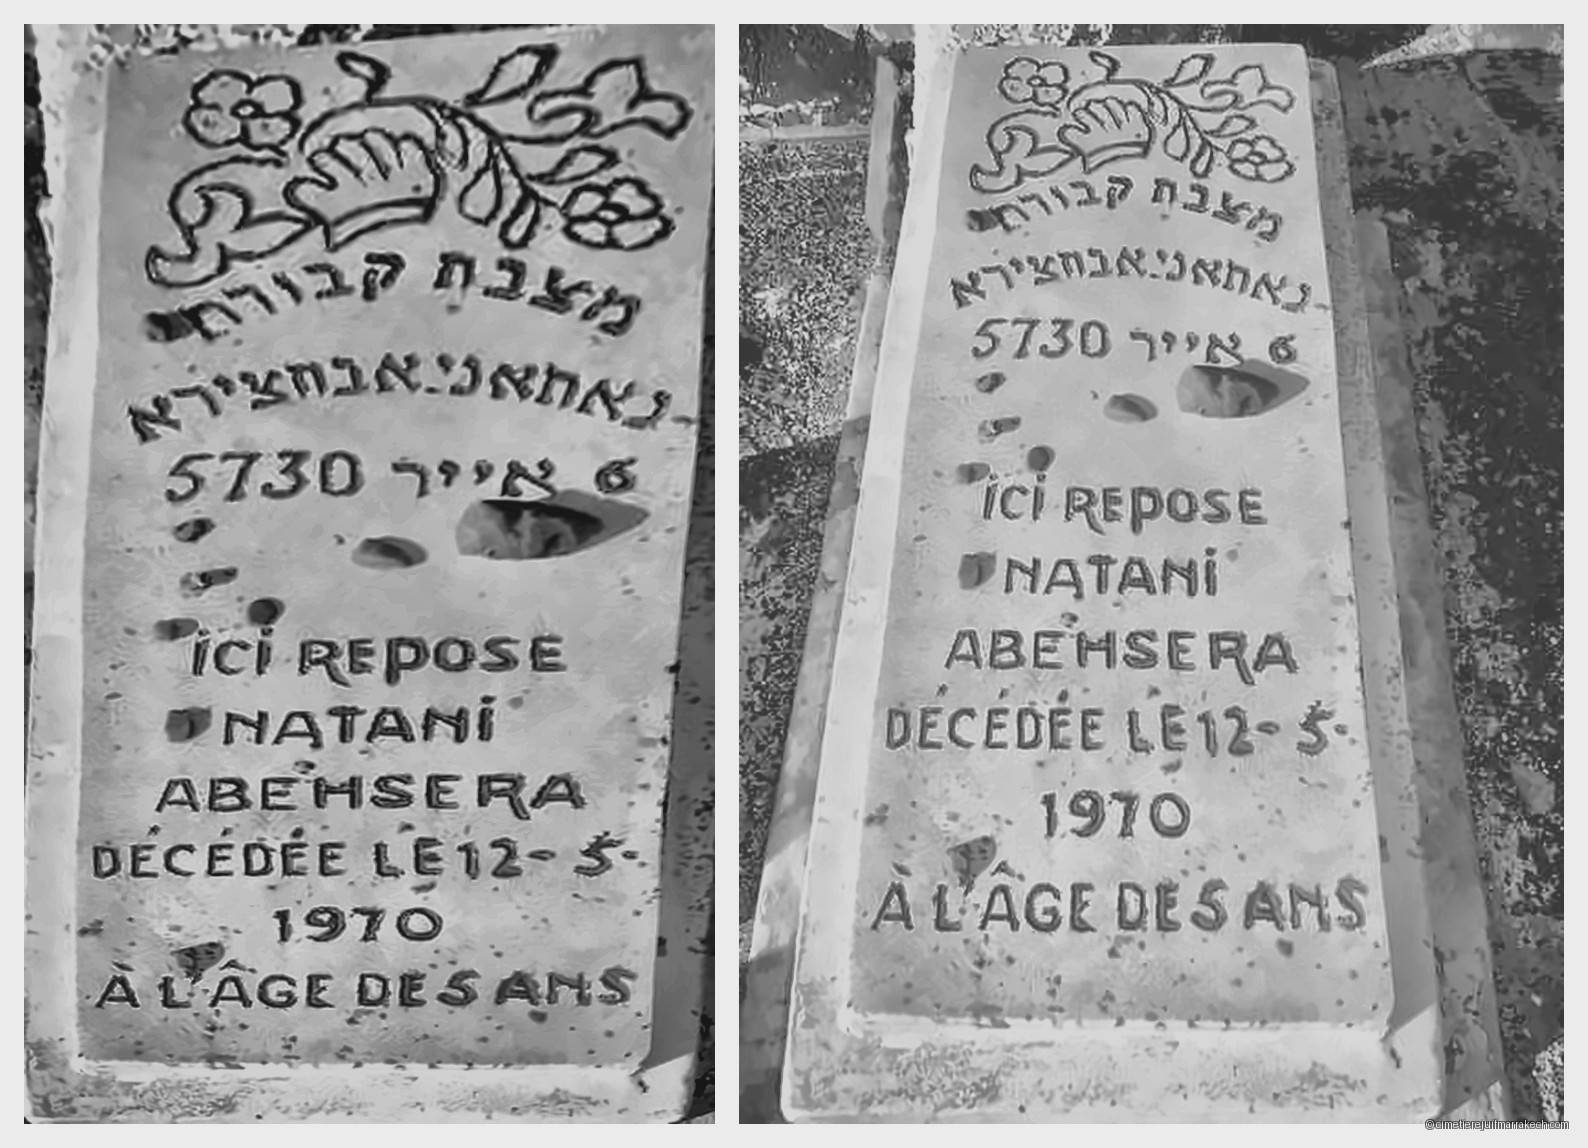 מצבת קבורת
נאתאני אבחצירא
6 אייר 5730
ICI REPOSE
NATANI
ABEHSERA
DÉCÉDÉE LE 12-5-
1970
À L'ÂGE DE 5 ANS
מצבת קבורת
נאתאני אבחצירא
6 אייר 5730
ICI REPOSE
NATANI
ABEHSERA
DÉCÉDÉE LE 12-5-
1970
À L'ÂGE DE 5 ANS
@cimetierejuifmarrakech.com